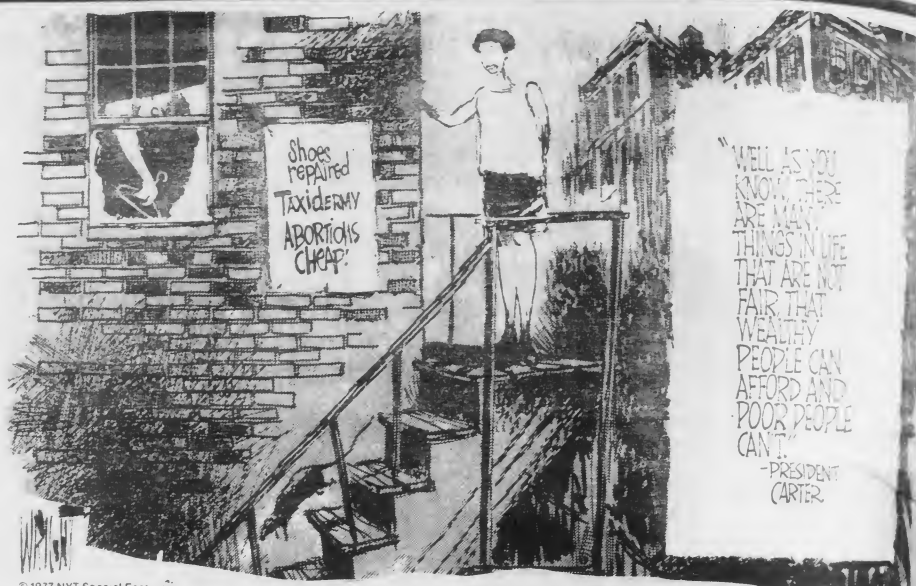 Shoes
repaired
TAXIDERMY
ABORTIONS
CHEAP!
"WELL AS YOU
KNOW, THERE
ARE MANY
THINGS IN LIFE
THAT ARE NOT
FAIR, THAT
WEALTHY
PEOPLE CAN
AFFORD AND
POOR PEOPLE
CAN'T."
-PRESIDENT
CARTER
© 1977 NYT Special